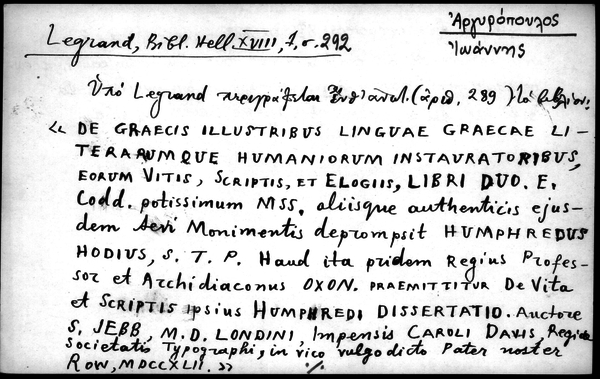 Ἀργυρόπουλος
Ἰωάννης
Legrand, Bibl. Hell. XVIII, 1, σ. 292
Ὑπό Legrand περιγράφεται (ἀριθ. 289) τό βιβλίον:
« DE GRAECIS ILLUSTRIBUS LINGUAE GRAECAE LI-
TERARUMQUE HUMANIORUM INSTAURATORIBUS,
EORUM VITIS, SCRIPTIS, ET ELOGIIS, LIBRI DUO. E.
Codd. potissimum MSS. aliisque authenticis ejus-
dem Aevi Monimentis deprompsit HUMPHREDUS
HODIUS, S. T. P. Haud ita pridem Regius Profes-
sor et Archidiaconus OXON. PRAEMITTITUR De Vita
et SCRIPTIS ipsius HUMPHREDI DISSERTATIO. Auctore
S. JEBB, M.D. LONDINI, Impensis CAROLI DAVIS, Regiae
Societatis Typographi, in vico vulgo dicto Pater noster
ROW, MDCCXLII. »
./.